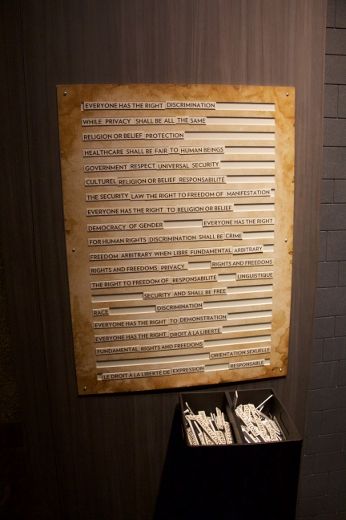 EVERYONE HAS THE RIGHT DISCRIMINATION
WHILE PRIVACY SHALL BE ALL THE SAME
RELIGION OR BELIEF PROTECTION
HEALTHCARE SHALL BE FAIR TO HUMAN BEINGS
GOVERNMENT RESPECT UNIVERSAL SECURITY
CULTUREL RELIGION OR BELIEF RESPONSABILITÉ
THE SECURITY LAW THE RIGHT TO FREEDOM OF MANIFESTATION
EVERYONE HAS THE RIGHT TO RELIGION OR BELIEF
DEMOCRACY OF GENDER EVERYONE HAS THE RIGHT
FOR HUMAN RIGHTS DISCRIMINATION SHALL BE CRIME
FREEDOM ARBITRARY WHEN LIBRE FUNDAMENTAL ARBITRARY
RIGHTS AND FREEDOMS PRIVACY RIGHTS AND FREEDOMS
THE RIGHT TO FREEDOM OF RESPONSABILITÉ LINGUISTIQUE
SECURITY AND SHALL BE FREE
RACE DISCRIMINATION
EVERYONE HAS THE RIGHT TO DEMONSTRATION
EVERYONE HAS THE RIGHT DROIT À LA LIBERTÉ
FUNDAMENTAL RIGHTS AND FREEDOMS
ORIENTATION SEXUELLE
LE DROIT À LA LIBERTÉ DE EXPRESSION RESPONSABLE